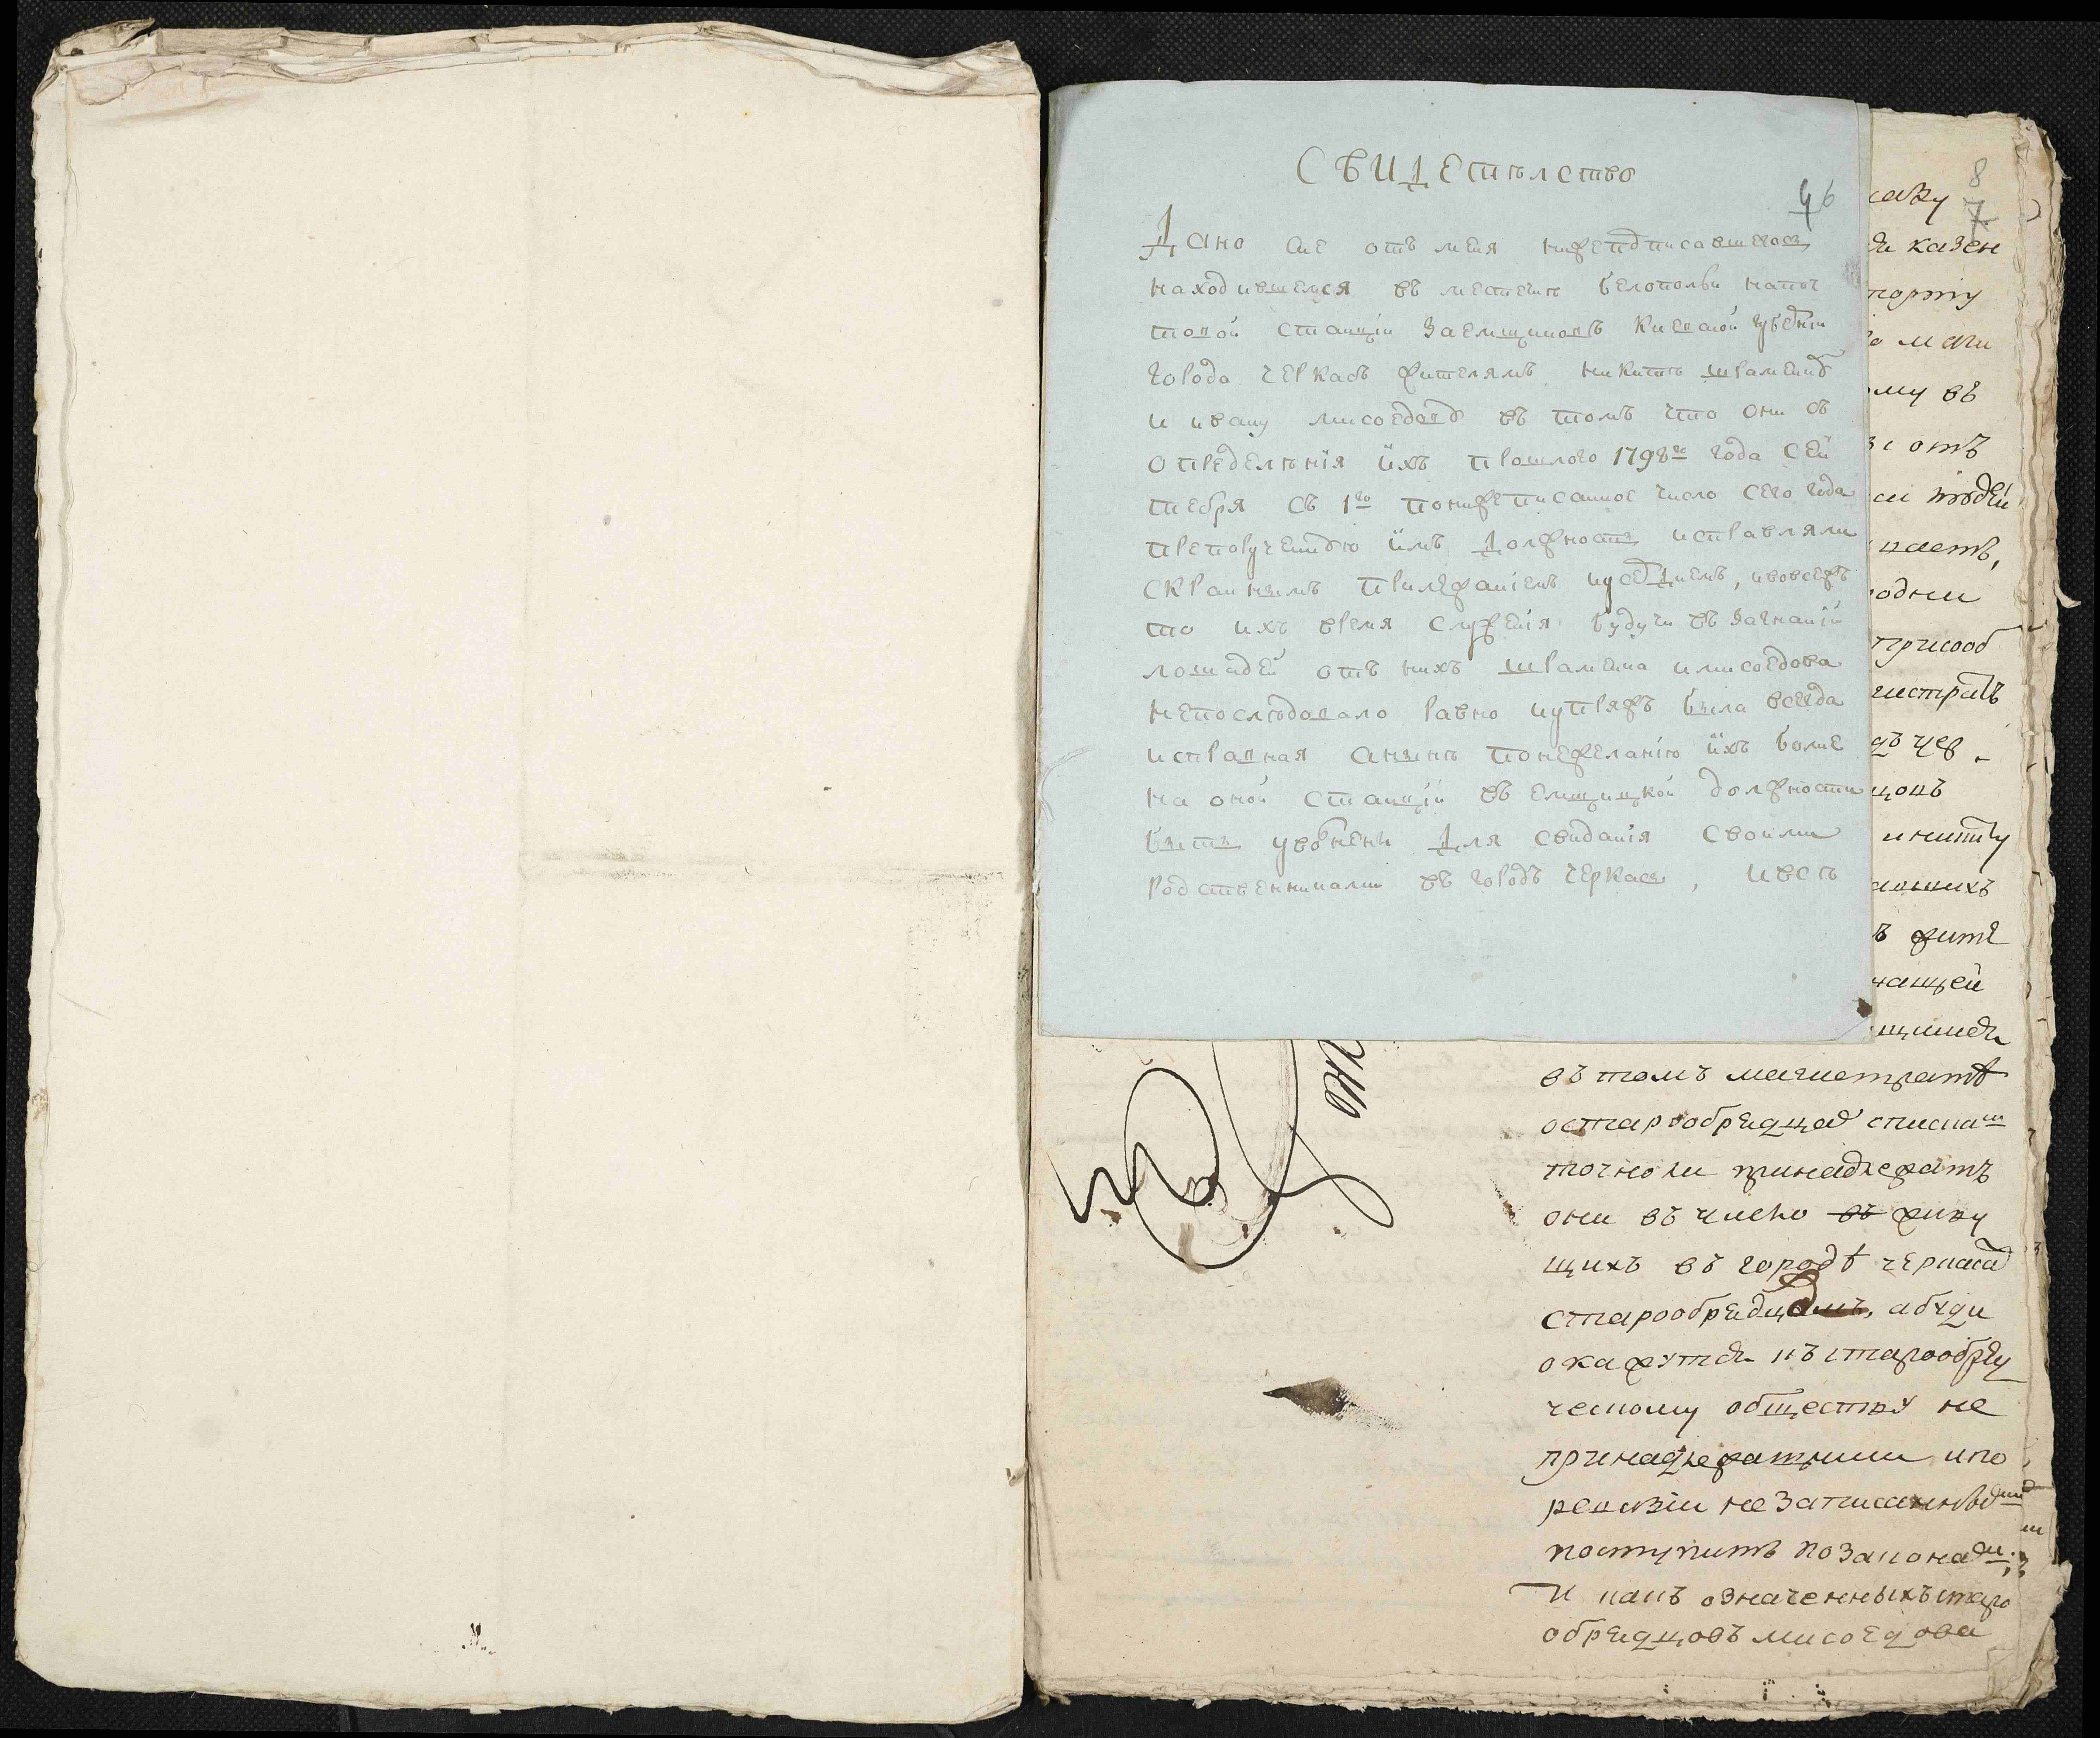 Свидетѣлство
46
Дано сие отъ меня нижеподписавшегось
находившемся въ местечкѣ Белопольи напоч
товой станціи Заемщиковъ Киевской губерніи
города Черкасъ жителямъ никитѣ шрамченкѣ
и ивану мисоедову въ томъ что они съ
определѣнія ихъ прошлого 1798го года Сен
тебря съ 1го понижеписанное число сего года
препорученную имъ должность исправляли
скрайнимъ прилежаніемъ иусердиемъ, ивовсежъ
то ихъ время служенія будучи въ загнаніи
лошадей отъ нихъ имисоедова
непоследовало равно иупряжъ была всегда
исправная анынѣ понежеланію ихъ более
на оной станціи въ емщицкой должности
быть уволнены Для свиданія своими
родственниками въ городъ Черкасы, ивсѣ
8
7
казен
порту
ому въ
отъ
людей
присооб
цовъ
жите
въ томъ магистратѣ
остарообрядцовъ списка
точноли принадлежатъ
они въ число въ живу
щихъ въ городѣ черкасъ
старообрядцамъ, абуди
окажутся къ старообряд
ческому обществу не
принадлежатными ипо
ревизіи не записанными
поступить позаконамъ;
И какъ означенныхъ старо
обрядцовъ мисоедова